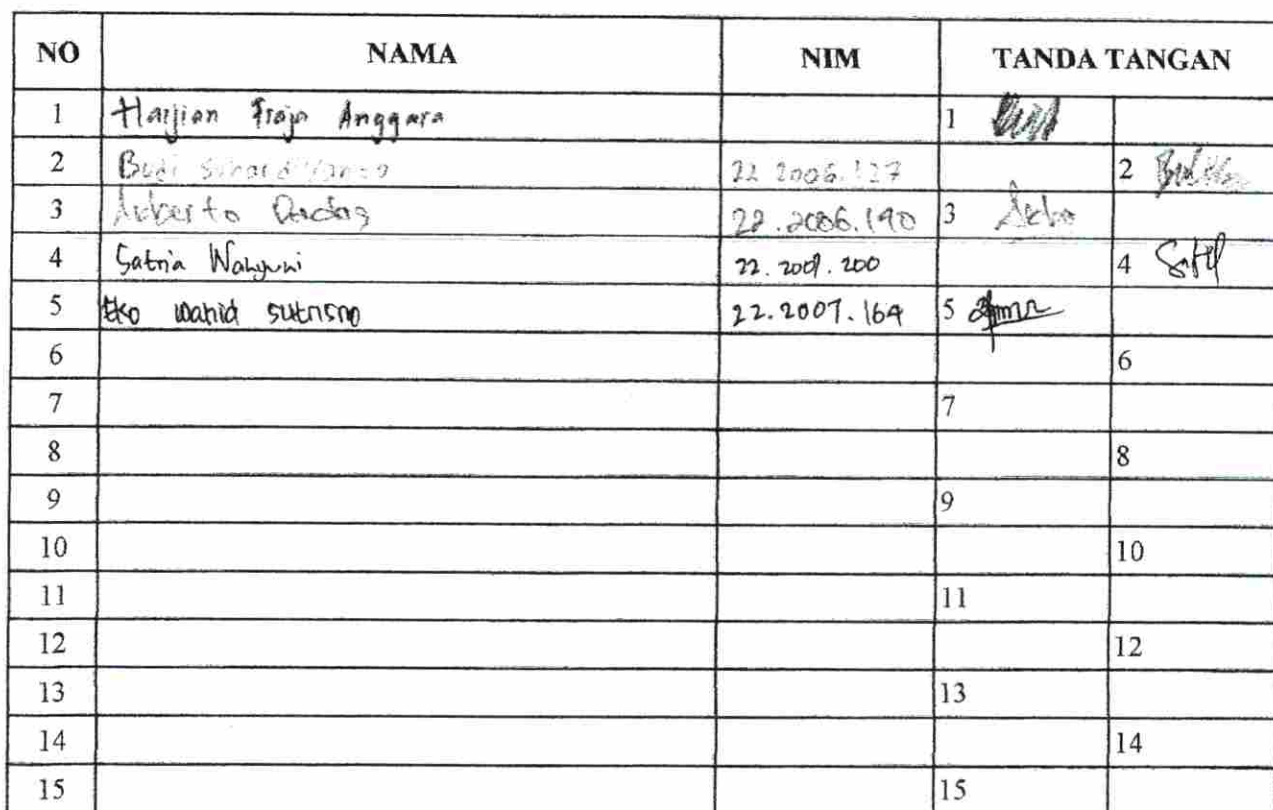 NO NAMA NIM TANDA TANGAN
1 Harjian Anggara 1
2 Budi 22 2006.127 2
3 22.2006.190 3
4 Satria Wahyuni 22.2009.200 4
5 Eko Wahid Sutrisno 22.2007.164 5
6 6
7 7
8 8
9 9
10 10
11 11
12 12
13 13
14 14
15 15